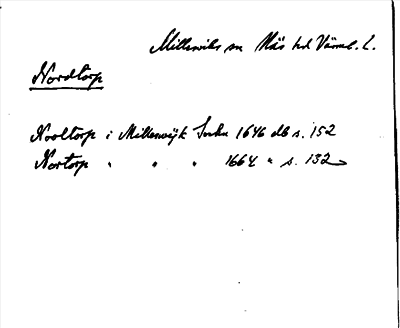 Millesviks sn Näs hd Värml. l.
Nordtorp
Nooltorp i Milleswijk Sockn 1646 db s. 152
Nortorp " " " 1664 " s. 132